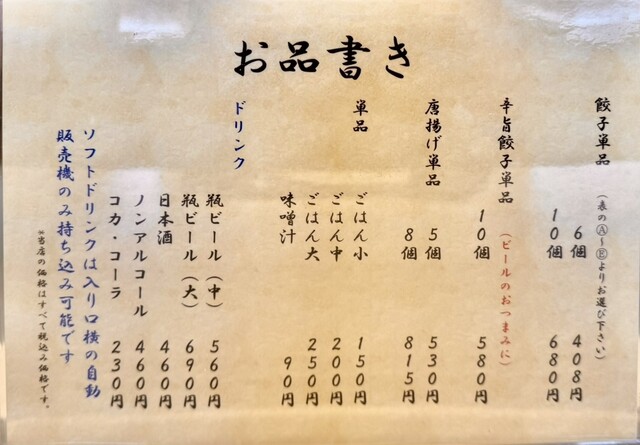 お品書き
餃子単品
(表のⒶ〜Ⓔよりお選び下さい)
6個 408円
10個 680円
辛旨餃子単品
(ビールのおつまみに)
10個 580円
唐揚げ単品
5個 530円
8個 815円
単品
ごはん小 150円
ごはん中 200円
ごはん大 250円
味噌汁 90円
ドリンク
瓶ビール(中) 560円
瓶ビール(大) 690円
日本酒 460円
ノンアルコール 460円
コカ・コーラ 230円
ソフトドリンクは入り口横の自動
販売機のみ持ち込み可能です
※当店の価格はすべて税込み価格です。